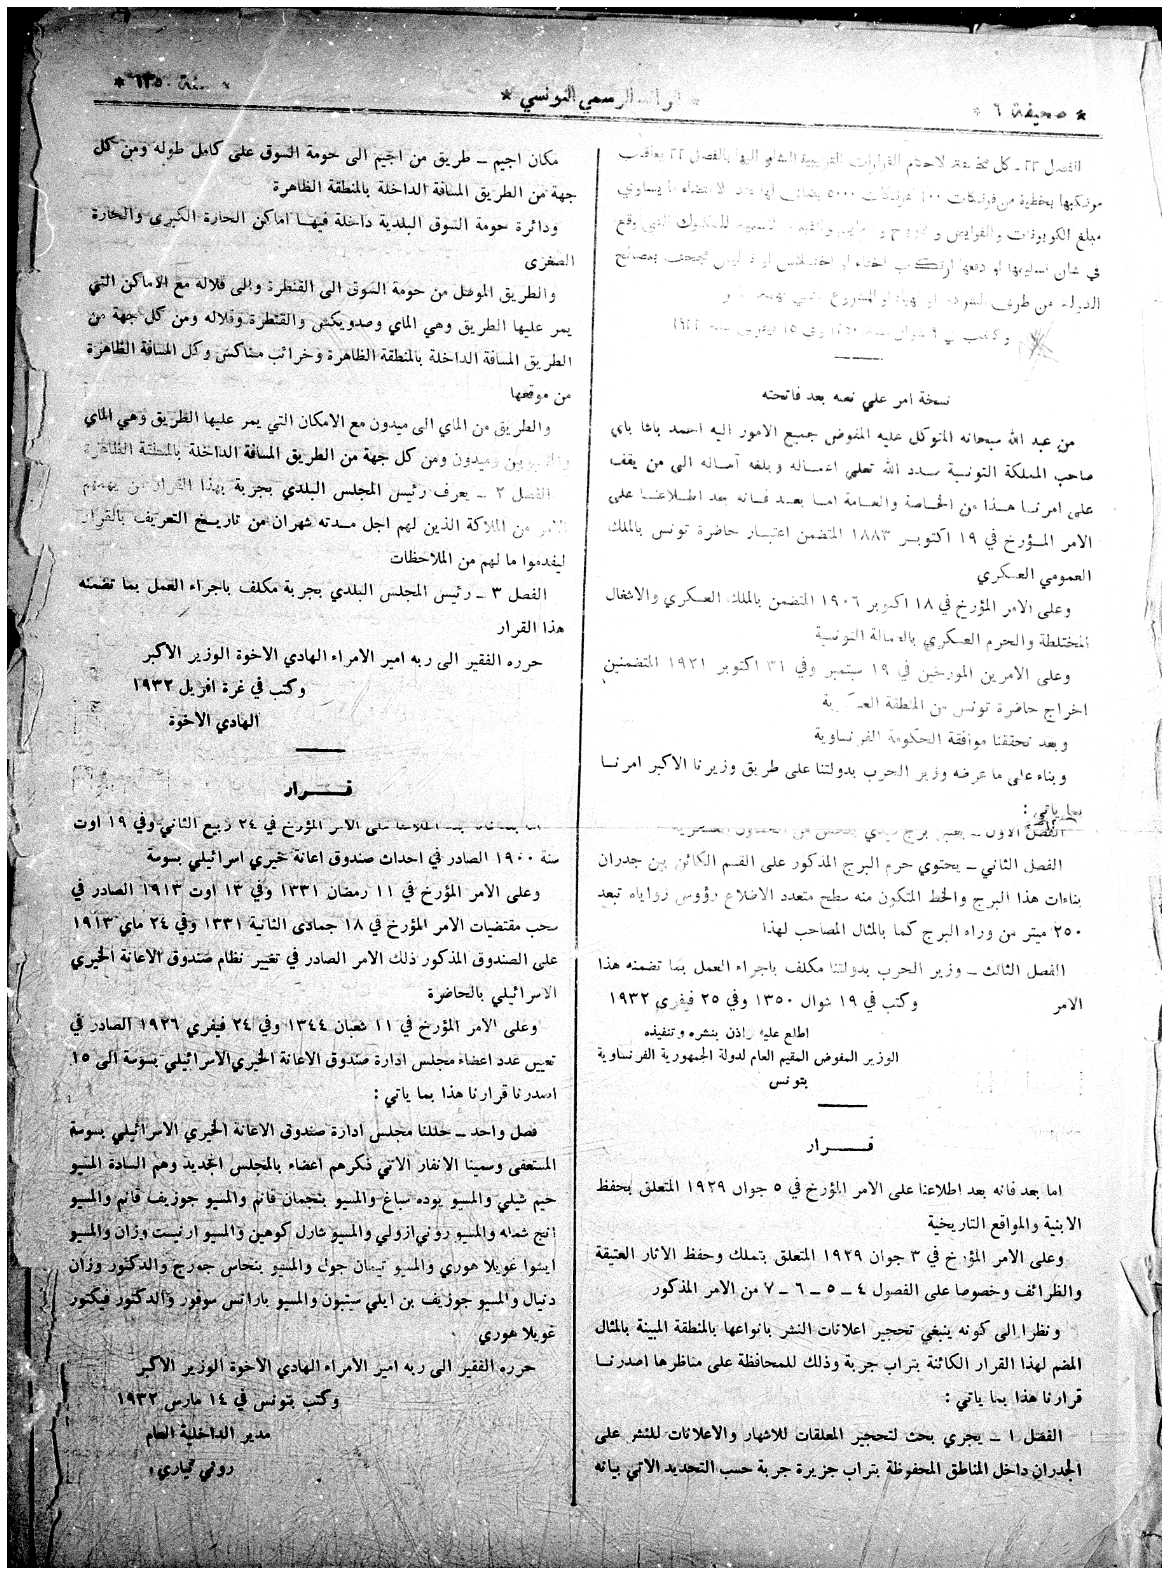 * صحيفة ٦ *
* الرائد الرسمي التونسي *
* سنة ١٣٥٠ *
الفصل ٢٢ ـ كل
مرتكبها بخطية من فرنكات ١٠٠ ٥٠٠٠
مبلغ الكوبونات والفرايض التي وقع
في شان تسليمها او دفعها
الدولة
نسخة امر علي نصه بعد فاتحته
من عبد الله سبحانه المتوكل عليه المفوض جميع الامور اليه احمد باشا باي
صاحب المملكة التونسية سدد الله تعلى اعماله وبلغه آماله الى من يقف
على امرنا هذا من الخاصة والعامة اما بعد فانه بعد اطلاعنا على
الامر المؤرخ في ١٩ اكتوبر ١٨٨٣ المتضمن اعتبار حاضرة تونس بالملك
العمومي العسكري
وعلى الامر المؤرخ في ١٨ اكتوبر ١٩٠٦ المتضمن بالملك العسكري والاشغال
المختلطة والحرم العسكري بالعمالة التونسية
وعلى الامرين المورخين في ١٩ ستمبر وفي ٣١ اكتوبر ١٩٢١ المتضمنين
اخراج حاضرة تونس من المنطقة العسكرية
وبعد تحققنا موافقة الحكومة الفرنساوية
وبناء على ما عرضه وزير الحرب بدولتنا على طريق وزيرنا الاكبر امرنا
بما ياتي :
الفصل الاول ـ يعتبر برج
الفصل الثاني ـ يحتوي حرم البرج المذكور على القسم الكائن بين جدران
بناءات هذا البرج والخط المتكون منه سطح متعدد الاضلاع رؤوس زواياه تبعد
٢٥٠ ميتر من وراء البرج كما بالمثال المصاحب لهذا
الفصل الثالث ـ وزير الحرب بدولتنا مكلف باجراء العمل بما تضمنه هذا
الامر وكتب في ١٩ شوال ١٣٥٠ وفي ٢٥ فيفري ١٩٣٢
اطلع عليه واذن بنشره وتنفيذه
الوزير المفوض المقيم العام لدولة الجمهورية الفرنساوية
بتونس
قـــرار
اما بعد فانه بعد اطلاعنا على الامر المؤرخ في ٥ جوان ١٩٢٩ المتعلق بحفظ
الابنية والمواقع التاريخية
وعلى الامر المؤرخ في ٣ جوان ١٩٢٩ المتعلق بتملك وحفظ الاثار العتيقة
والظرائف وخصوصا على الفصول ٤ ـ ٥ ـ ٦ ـ ٧ من الامر المذكور
ونظرا الى كونه ينبغي تحجير اعلانات النشر بانواعها بالمنطقة المبينة بالمثال
المضم لهذا القرار الكائنة بتراب جربة وذلك للمحافظة على مناظرها اصدرنا
قرارنا هذا بما ياتي :
الفصل ١ ـ يجري بحث لتحجير المعلقات للاشهار والاعلانات للنشر على
الجدران داخل المناطق المحفوظة بتراب جزيرة جربة حسب التحديد الاتي بيانه
مكان اجيم ـ طريق من اجيم الى حومة السوق على كامل طوله ومن كل
جهة من الطريق المسافة الداخلة بالمنطقة الظاهرة
ودائرة حومة السوق البلدية داخلة فيها اماكن الحارة الكبرى والحارة
الصغرى
والطريق الموصل من حومة السوق الى القنطرة والى قلاله مع الاماكن التي
يمر عليها الطريق وهي الماي وصدويكش والقنطرة وقلاله ومن كل جهة من
الطريق المسافة الداخلة بالمنطقة الظاهرة وخرائب مناكس وكل المسافة الظاهرة
من موقعها
والطريق من الماي الى ميدون مع الامكان التي يمر عليها الطريق وهي الماي
وميدون ومن كل جهة من الطريق المسافة الداخلة بالمنطقة الظاهرة
الفصل ٢ ـ يعرف رئيس المجلس البلدي بجربة بهذا القرار من يهمهم
الامر من الملاكة الذين لهم اجل مدته شهران من تاريخ التعريف بالقرار
ليقدموا ما لهم من الملاحظات
الفصل ٣ ـ رئيس المجلس البلدي بجربة مكلف باجراء العمل بما تضمنه
هذا القرار
حرره الفقير الى ربه امير الامراء الهادي الاخوة الوزير الاكبر
وكتب في غرة افريل ١٩٣٢
الهادي الاخوة
قـــرار
اما بعد فانه بعد اطلاعنا على الامر المؤرخ في ٢٤ ربيع الثاني وفي ١٩ اوت
سنة ١٩٠٠ الصادر في احداث صندوق اعانة خيري اسرائيلي بسوسة
وعلى الامر المؤرخ في ١١ رمضان ١٣٣١ وفي ١٣ اوت ١٩١٣ الصادر في
سحب مقتضيات الامر المؤرخ في ١٨ جمادى الثانية ١٣٣١ وفي ٢٤ ماي ١٩١٣
على الصندوق المذكور ذلك الامر الصادر في تغيير نظام صندوق الاعانة الخيري
الاسرائيلي بالحاضرة
وعلى الامر المؤرخ في ١١ شعبان ١٣٤٤ وفي ٢٤ فيفري ١٩٢٦ الصادر في
تعيين عدد اعضاء مجلس ادارة صندوق الاعانة الخيري الاسرائيلي بسوسة الى ١٥
اصدرنا قرارنا هذا بما ياتي :
فصل واحد ـ حللنا مجلس ادارة صندوق الاعانة الخيري الاسرائيلي بسوسة
المستعفى وسمينا الانفار الاتي ذكرهم اعضاء بالمجلس الجديد وهم السادة المسيو
حيم شيلي والمسيو يوده سباغ والمسيو بنجمان قانم والمسيو جوزيف قانم والمسيو
انج شمله والمسيو روني ازولي والمسيو شارل كوهين والمسيو ارنيست وزان والمسيو
ايشوا غويلا هوري والمسيو تيمان جول والمسيو بنحاس جورج والدكتور وزان
دنيال والمسيو جوزيف بن ايلي ستبون والمسيو باراتس سوفور والدكتور فيكتور
غويلا هوري
حرره الفقير الى ربه امير الامراء الهادي الاخوة الوزير الاكبر
وكتب بتونس في ١٤ مارس ١٩٣٢
مدير الداخلية العام